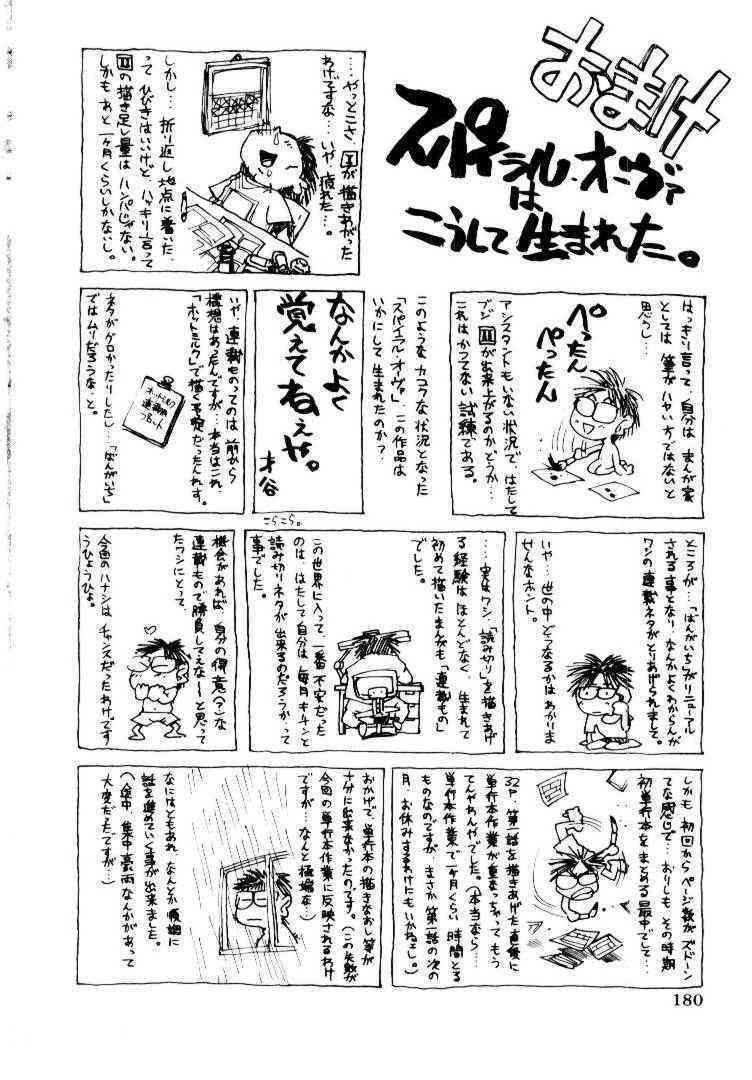 おまけ
スパイラル・オーヴァ
は
こうして生まれた。
……やっとこさ、Ⅰが描きあがった
わけですな…いや、疲れた…。
しかし…折り返し地点に着いた、
って ひびきはいいけど、ハッキリ言って
Ⅱの描き足し量は ハンパじゃない。
しかも あと一ヶ月くらいしかないし。
はっきり言って、自分は まんが家
としては 筆が ハヤい方ではないと
思うし…
ぺったん
ぺったん
アシスタントもいない状況で、はたして
ブジ Ⅱが出来上がるのかどうか…
これは かつてない 試練である。
このような カコクな 状況となった
「スパイラル・オーヴァ」、この作品は
いかにして 生まれたのか？
なんかよく
覚えてねぇや。
才谷
こらこら。
いや、連載ものってのは 前から
構想はあったんですが…本当はこれ、
「ホットミルク」で描く予定だったんです。
ホットミルク
連載用
プロット
ネタがゲロかったりしたし…「ばんがいち」
ではムリだろうな、と。
ところが…「ばんがいち」がリニューアル
される事となり、なんかよくわからんが
ワシの連載ネタがとりあげられました。
いや…世の中どうなるかはわかりま
せんなホント。
……実はワシ、「読み切り」を描きあげ
る経験はほとんどなく、生まれて
初めて描いたまんがも「連載もの」
でした。
この世界に入って、一番不安だった
のは、はたして自分は 毎月キチンと
読み切りネタが出来るのだろうかって
事でした。
機会があれば、自分の得意(?)な
連載もので勝負してえな〜と思って
たワシにとって、
今回のハナシはチャンスだったわけです
うひょうひょ。
しかも 初回からページ数がズドーン
てな感じで…おりしも その時期
初単行本をまとめる最中でして…
32P、第一話を描きあげた直後に
単行本作業が重なっちゃってもう
てんやわんやでした。(本当なら…
単行本作業で一ヶ月くらい 時間とる
ものなのですが、まさか 第一話の次の
月、お休みするわけにもいかねぇし。)
おかげで、単行本の描きなおし等が
十分に出来なかったのです。(この失敗が
今回の単行本作業に反映されるわけ
ですが…なんと極端な…)
なにはともあれ、なんとか順調に
話を進めていく事が出来ました。
(途中、集中豪雨なんかがあって
大変だったですが…)
180